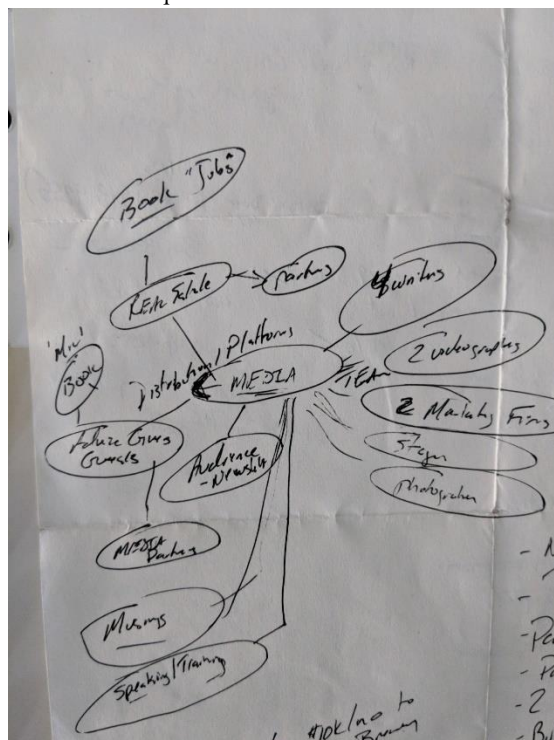 Book "Jobs"
Real Estate
partners
4 writers
Distribution / Platforms
MEDIA
TEAM
2 videographers
2 Marketing Firms
Stager
photographer
Book
Future Guests
Audience
- Newsletter
MEDIA
Partners
Musings
Speaking/Training
to
- 2